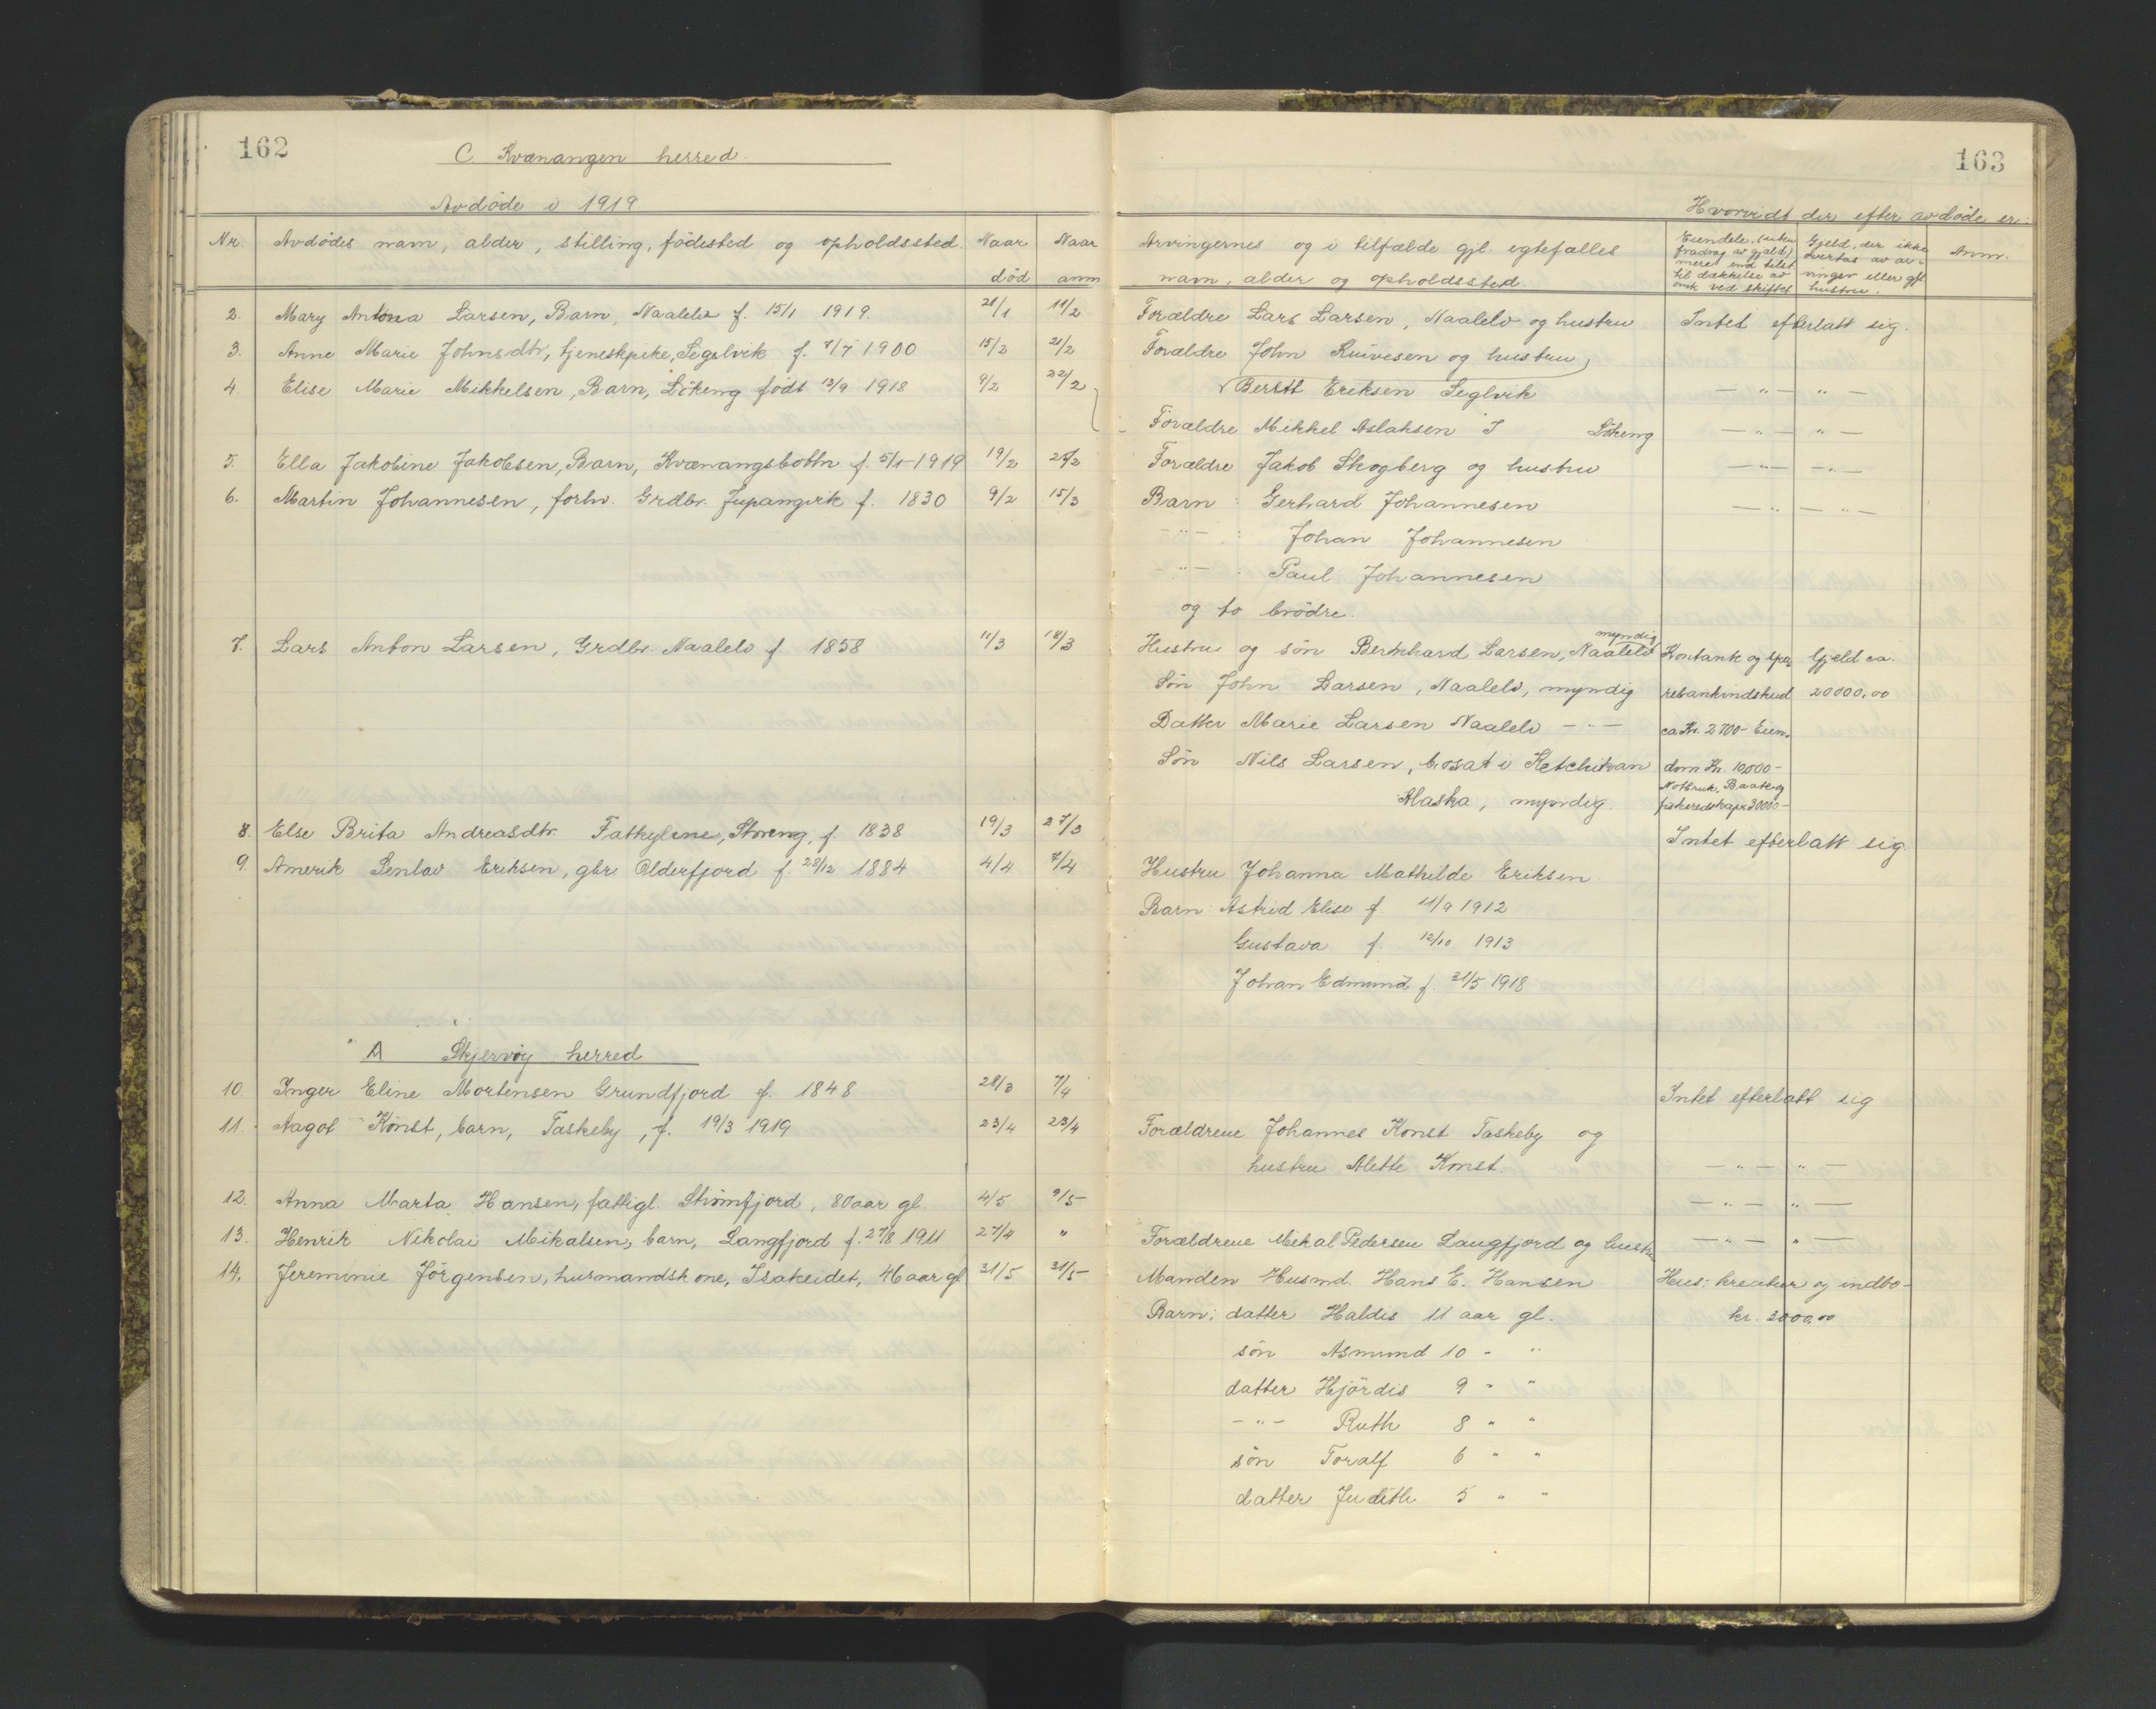 162
C Kvænangen herred
Avdøde i 1919
Nr. Avdødes navn, alder, stilling, fødested og opholdssted. Naar død Naar anm
2. Mary Antona Larsen, Barn, Naalelv f. 15/1 1919. 21/1 11/2
3. Anne Marie Johnsdtr, tjenestpike, Segelvik f. 7/7 1900 15/2 21/2
4. Elise Marie Mikkelsen, Barn, Løkeng født 12/9 1918 9/2 22/2
5. Ella Jakobine Jakobsen, Barn, Kvænangsbottn f. 5/1 1919 19/2 25/2
6. Martin Johannesen, forhv. Grdbr. Jupangvik f. 1830 9/2 15/3
7. Lars Anton Larsen, Grdbr. Naalelv f. 1858 11/3 18/3
8. Else Brita Andreasdtr. Storeng, f. 1838 19/3 27/3
9. Amerik Senlav Eriksen, gbr. Olderfjord f. 28/12 1884 4/4 7/4
A Skjervøy herred
10. Inger Eline Mortensen Grundfjord f. 1848 28/3 7/4
11. Aagot Konst, barn, Taskeby, f. 19/3 1919 23/4 23/4
12. Anna Marta Hansen, fattigl. Strømfjord, 80 aar gl 4/5 9/5
13. Henrik Nikolai Mikalsen, barn, Langfjord f. 27/8 1911 27/4 "
14. Jereminie Jørgensen, husmandskone, Isakeidet, 46 aar gl 21/5 31/5
163
Hvorvidt der efter avdøde er:
Arvingernes og i tilfælde gjl. egtefælles
navn, alder og opholdssted.
Eiendele, (uten
fradrag av gjæld)
mere end tilst.
til dækkelse av
omk ved skiftet
Gjeld, der ikke
overtas av ar-
vinger eller gjl
hustru.
Anm.
Forældre Lars Larsen, Naalelv og hustru Intet efterlatt sig.
Forældre John Ruivesen og hustru
Berett Eriksen Seglvik — " — " —
Forældre Mikkel Aslaksen Løkeng — " — " —
Forældre Jakob Skogberg og hustru — " — " —
Barn: Gerhard Johannesen — " — " —
— " — : Johan Johannesen
— " — : Paul Johannesen
og to brødre.
Hustru og søn Bernhard Larsen, Naalelv myndig Kontank og spa- Gjeld ca.
Søn John Larsen, Naalelv, myndig rebankindskud 20000,00
Datter Marie Larsen Naalelv — " — ca Kr. 2700- Eien-
Søn Nils Larsen, bosat i Ketchikan dom Kr. 10,000-
Alaska, myndig. Notbruk, Baat og
fiskeredskaper 30000-
Intet efterlatt sig
Hustru Johanna Mathilde Eriksen
Barn: Astrid Elise f. 11/9 1912
Gustava f. 12/10 1913
Johan Edmund f. 21/5 1918
Intet efterlatt sig
Forældrene Johannes Konst Taskeby og
hustru Alette Konst. — " — " —
— " — " —
Forældrene Mikal Pedersen Langfjord og hustru — " — " —
Manden Husmd. Hans E. Hansen Hus: kreatur og indbo-
Barn: datter Haldis 11 aar gl. kr. 3000,00
søn Asmund 10 - "
datter Hjørdis 9 - "
— " — Ruth 8 " "
søn Toralf 6 " "
datter Judith 5 " "